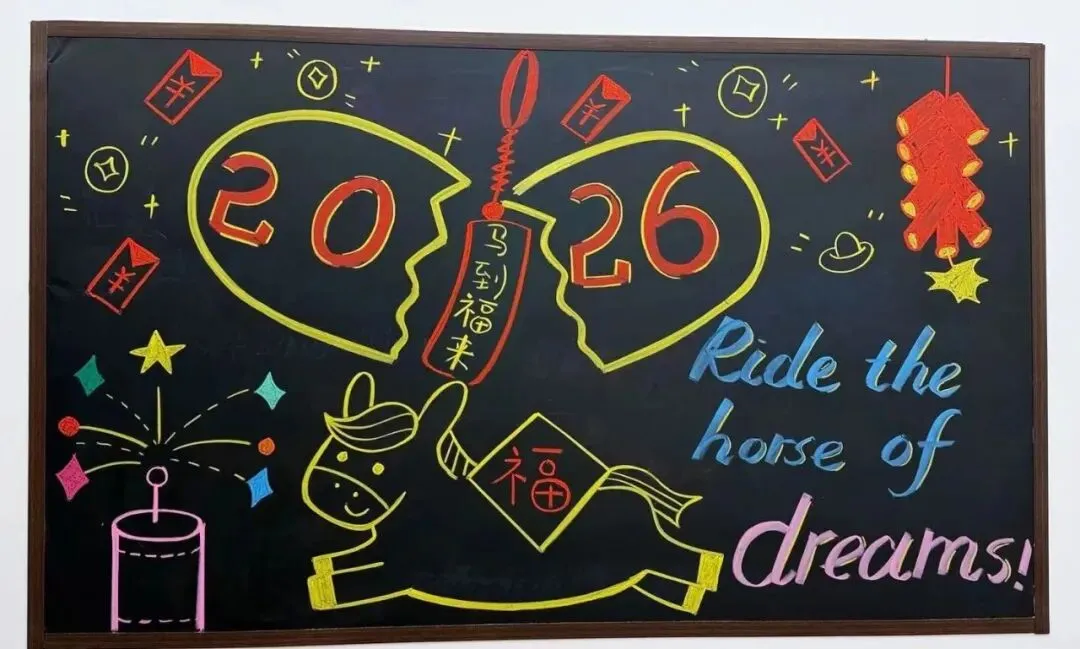 2026
马到福来
福
Ride the
horse of
dreams!